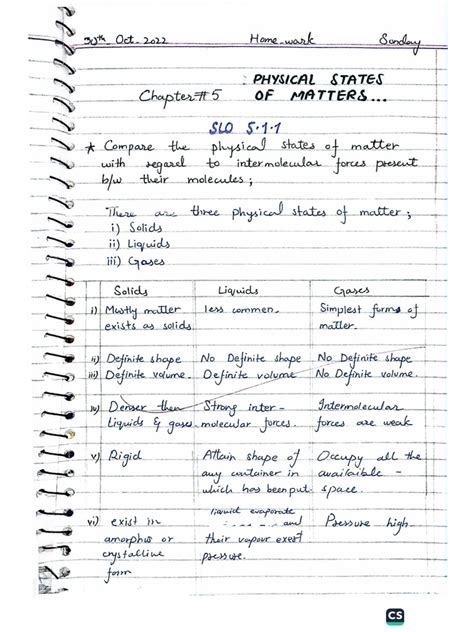 30th Oct. 2022 Home-work Sunday
: PHYSICAL STATES
Chapter# 5 OF MATTERS...
SLO 5.1.1
★ Compare the physical states of matter
with regard to intermolecular forces present
b/w their molecules ;
There are three physical states of matter ;
i) Solids
ii) Liquids
iii) Gases
Solids Liquids Gases
i) Mostly matter less common. Simplest form of
exists as solids. matter.
ii) Definite shape No Definite shape No Definite shape
iii) Definite volume. Definite volume No Definite volume.
iv) Denser then Strong inter- Intermolecular
Liquids & gases molecular forces. forces are weak
v) Rigid Attain shape of Occupy all the
any container in available -
which has been put. space.
vi) exist in liquid evaporate Pressure high
amorphus or and
crystalline their vapour exert
form pressure.
CS